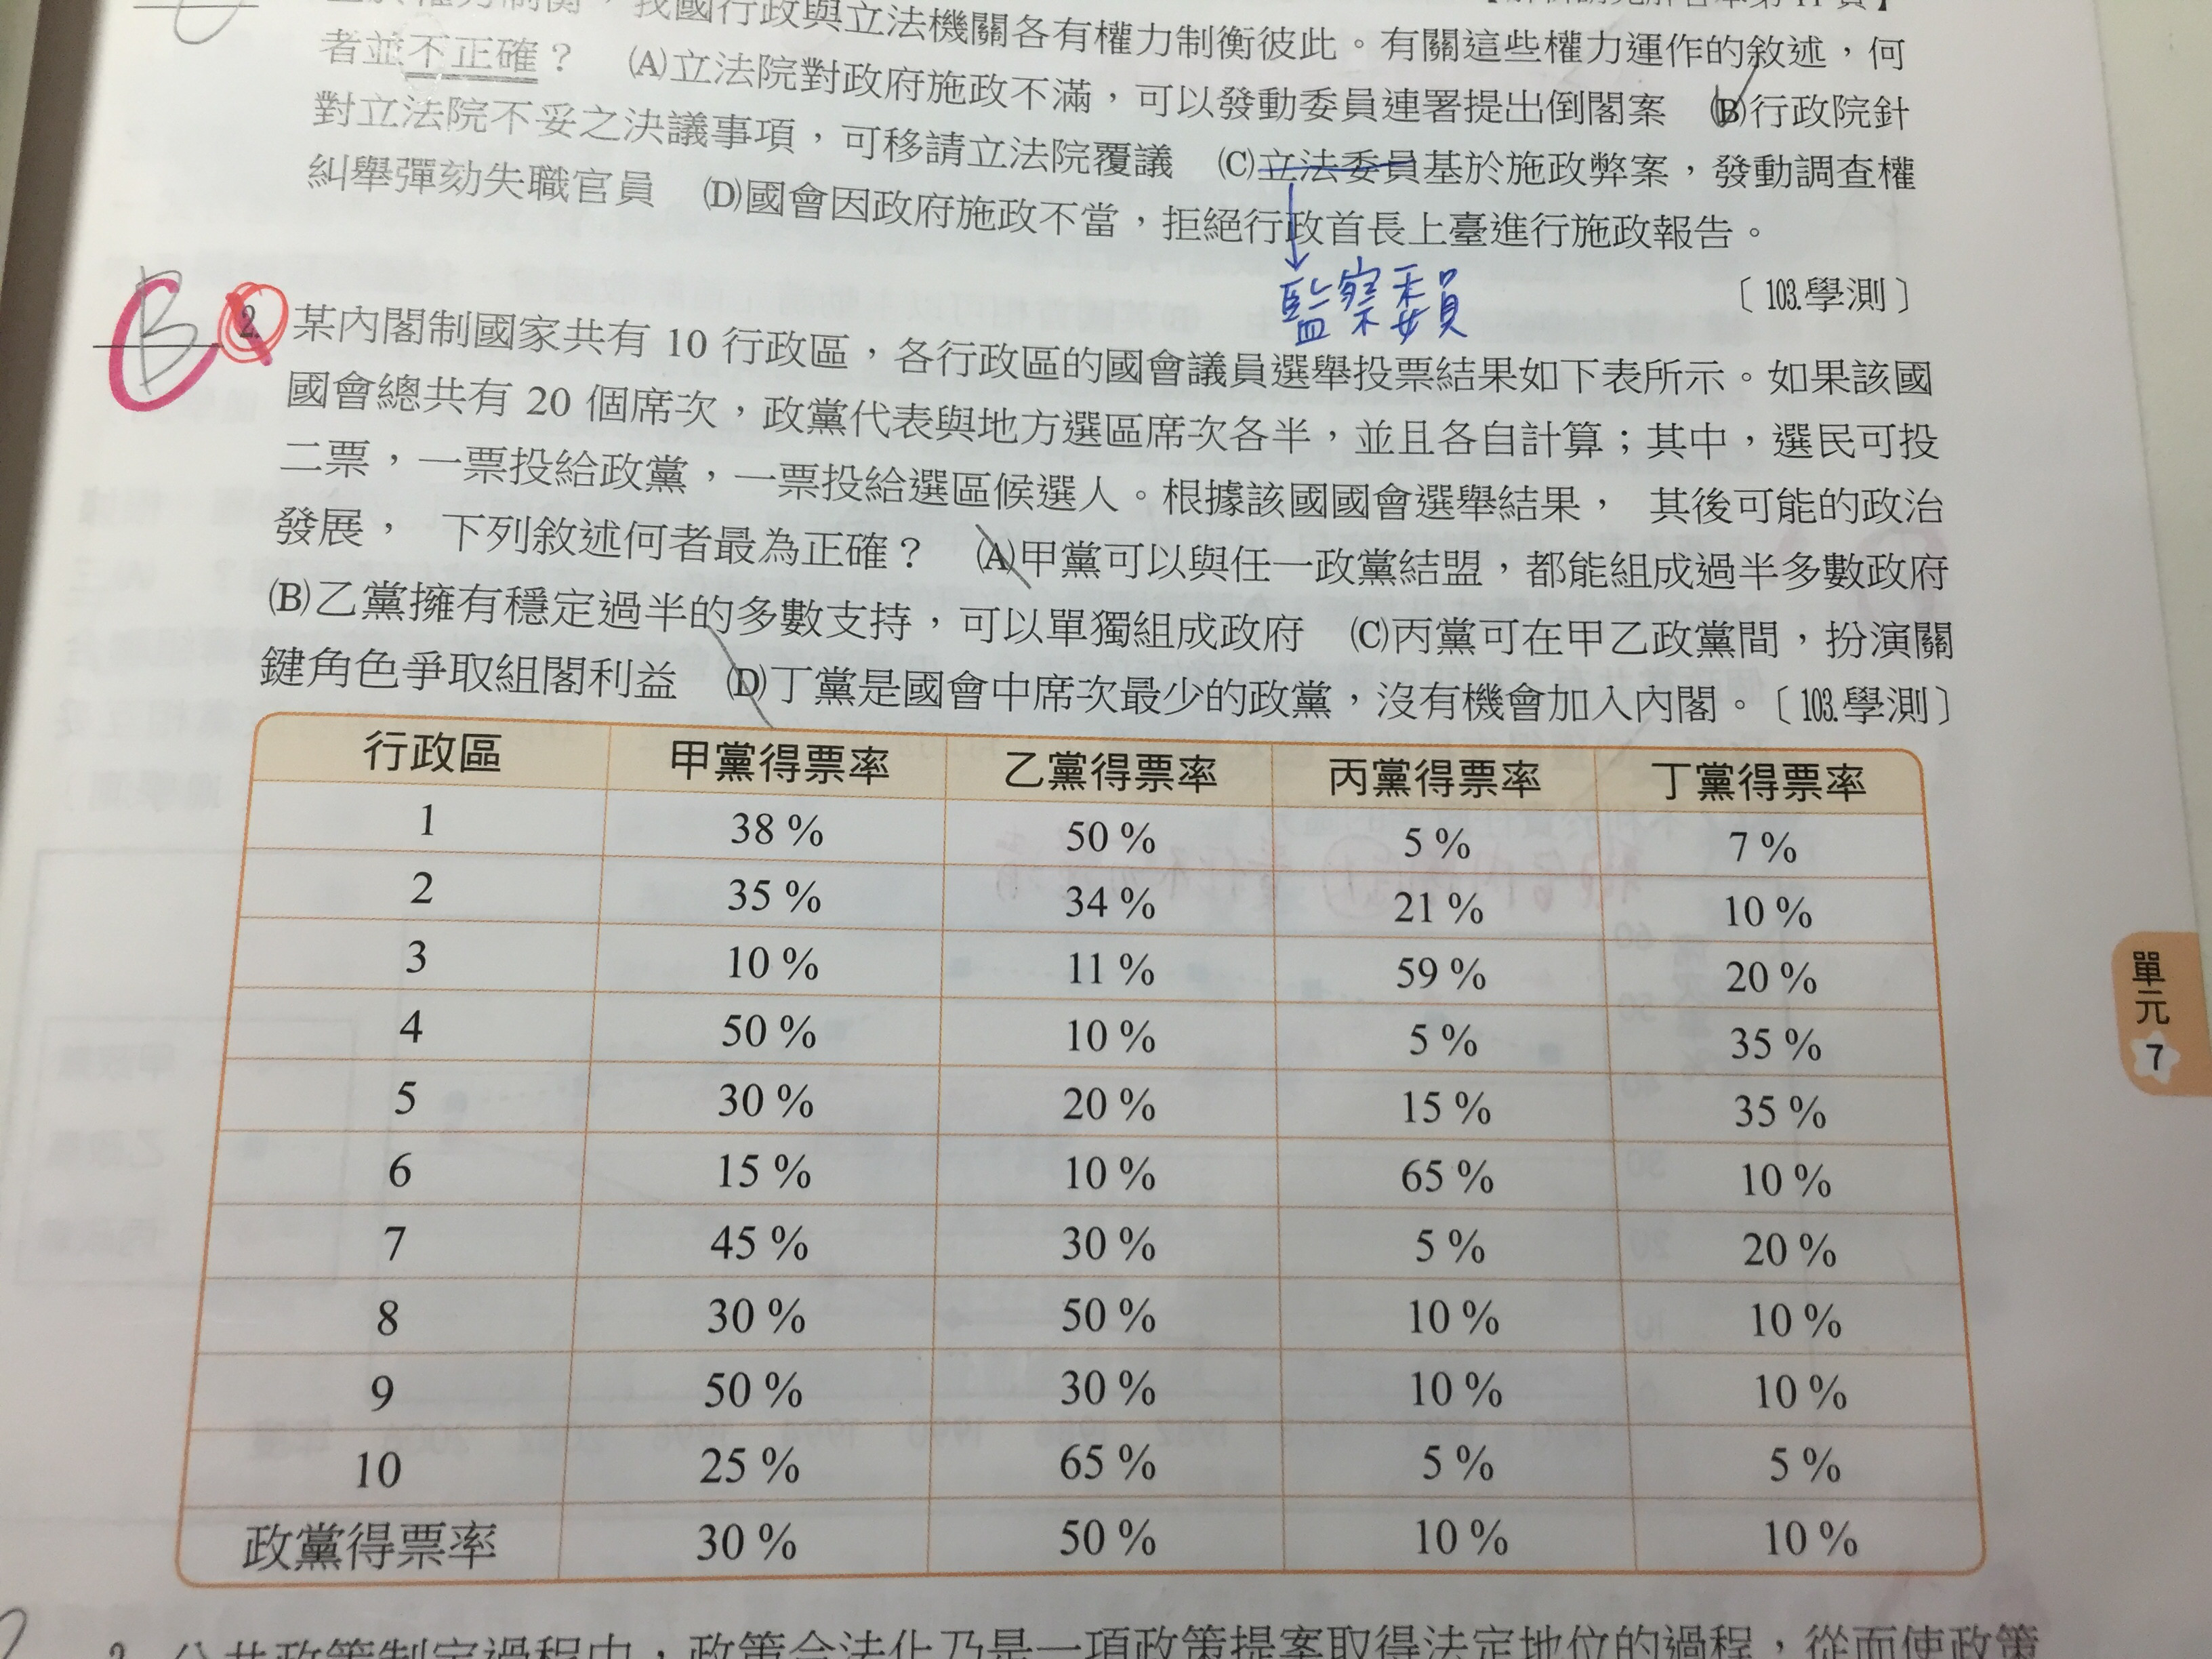 權力制衡，我國行政與立法機關各有權力制衡彼此。有關這些權力運作的敘述，何
者並不正確？ (A)立法院對政府施政不滿，可以發動委員連署提出倒閣案 (B)行政院針
對立法院不妥之決議事項，可移請立法院覆議 (C)立法委員基於施政弊案，發動調查權
糾舉彈劾失職官員 (D)國會因政府施政不當，拒絕行政首長上臺進行施政報告。
監察委員
〔103.學測〕
B
C
2. 某內閣制國家共有 10 行政區，各行政區的國會議員選舉投票結果如下表所示。如果該國
國會總共有 20 個席次，政黨代表與地方選區席次各半，並且各自計算；其中，選民可投
二票，一票投給政黨，一票投給選區候選人。根據該國國會選舉結果， 其後可能的政治
發展， 下列敘述何者最為正確？ (A)甲黨可以與任一政黨結盟，都能組成過半多數政府
(B)乙黨擁有穩定過半的多數支持，可以單獨組成政府 (C)丙黨可在甲乙政黨間，扮演關
鍵角色爭取組閣利益 (D)丁黨是國會中席次最少的政黨，沒有機會加入內閣。〔103.學測〕
行政區 甲黨得票率 乙黨得票率 丙黨得票率 丁黨得票率
1 38 % 50 % 5 % 7 %
2 35 % 34 % 21 % 10 %
3 10 % 11 % 59 % 20 %
4 50 % 10 % 5 % 35 %
5 30 % 20 % 15 % 35 %
6 15 % 10 % 65 % 10 %
7 45 % 30 % 5 % 20 %
8 30 % 50 % 10 % 10 %
9 50 % 30 % 10 % 10 %
10 25 % 65 % 5 % 5 %
政黨得票率 30 % 50 % 10 % 10 %
單元
7
3. 公共政策制定過程中，政策合法化乃是一項政策提案取得法定地位的過程，從而使政策